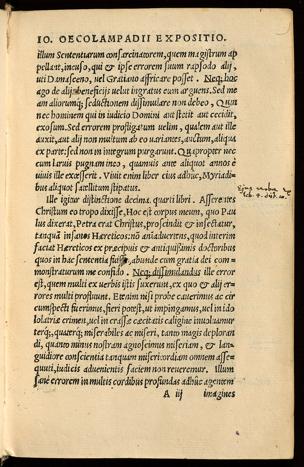 IO. OECOLAMPADII EXPOSITIO.
illum Sententiarum consarcinatorem, quem magistrum ap
pellant, incuso, qui & ipse errorem suum rapsodo alij,
uti Damasceno, uel Gratiano affricare posset. Neq; hoc
ago de alijs beneficijs uelut ingratus eum arguens. Sed me
am aliorumq; seductionem dissimulare non debeo, Qum
nec hominem qui in iudicio Domini aut stetit aut cecidit,
exosum. Sed errorem profligatum uelim, qualem aut ille
auxit, aut alij non multum ab eo uariantes, auctum, aliqua
ex parte: sed non in integrum purgarunt. Quapropter nec
cum laruis pugnam ineo, quamuis ante aliquot annos è
uiuis ille excesserit. Viuit enim liber eius adhuc, Myriadi=
bus aliquot satellitum stipatus.
Ille igitur distinctione decima quarti libri. Asserentes
Christum eo tropo dixisse, Hoc est corpus meum, quo Pau
lus dixerat, Petra erat Christus, proscindit & insectatur,
tanquã insanos Hæreticos: nõ aniaduertens, quod interim
faciat Hæreticos ex præcipuis & antiquissimis doctoribus
quos in hac sententia fuisse, abunde cum gratia dei com=
monstraturum me confido. Neq; dissimulandus ille error
est, quem multi ex uerbis istis suxerunt, ex quo & alij er=
rores multi profluunt. Etenim nisi probe cauerimus ac cir
cumspecti fuerimus, fieri potest, ut impingamus, uel in ido
lolatriæ crimen, uel in crassæ cæcitatis caligine inuoluamur
terq;, quaterq; miserabiles ac miseri, tanto magis deploran
di, quanto minus nostram agnoscimus miseriam, & lan=
guidiore conscientia tanquam misericordiam omnem asse=
quuti, iudicis aduenientis faciem non reueremur. Illum
sane errorem in multis cordibus profundas adhuc agentem
A iij imagines